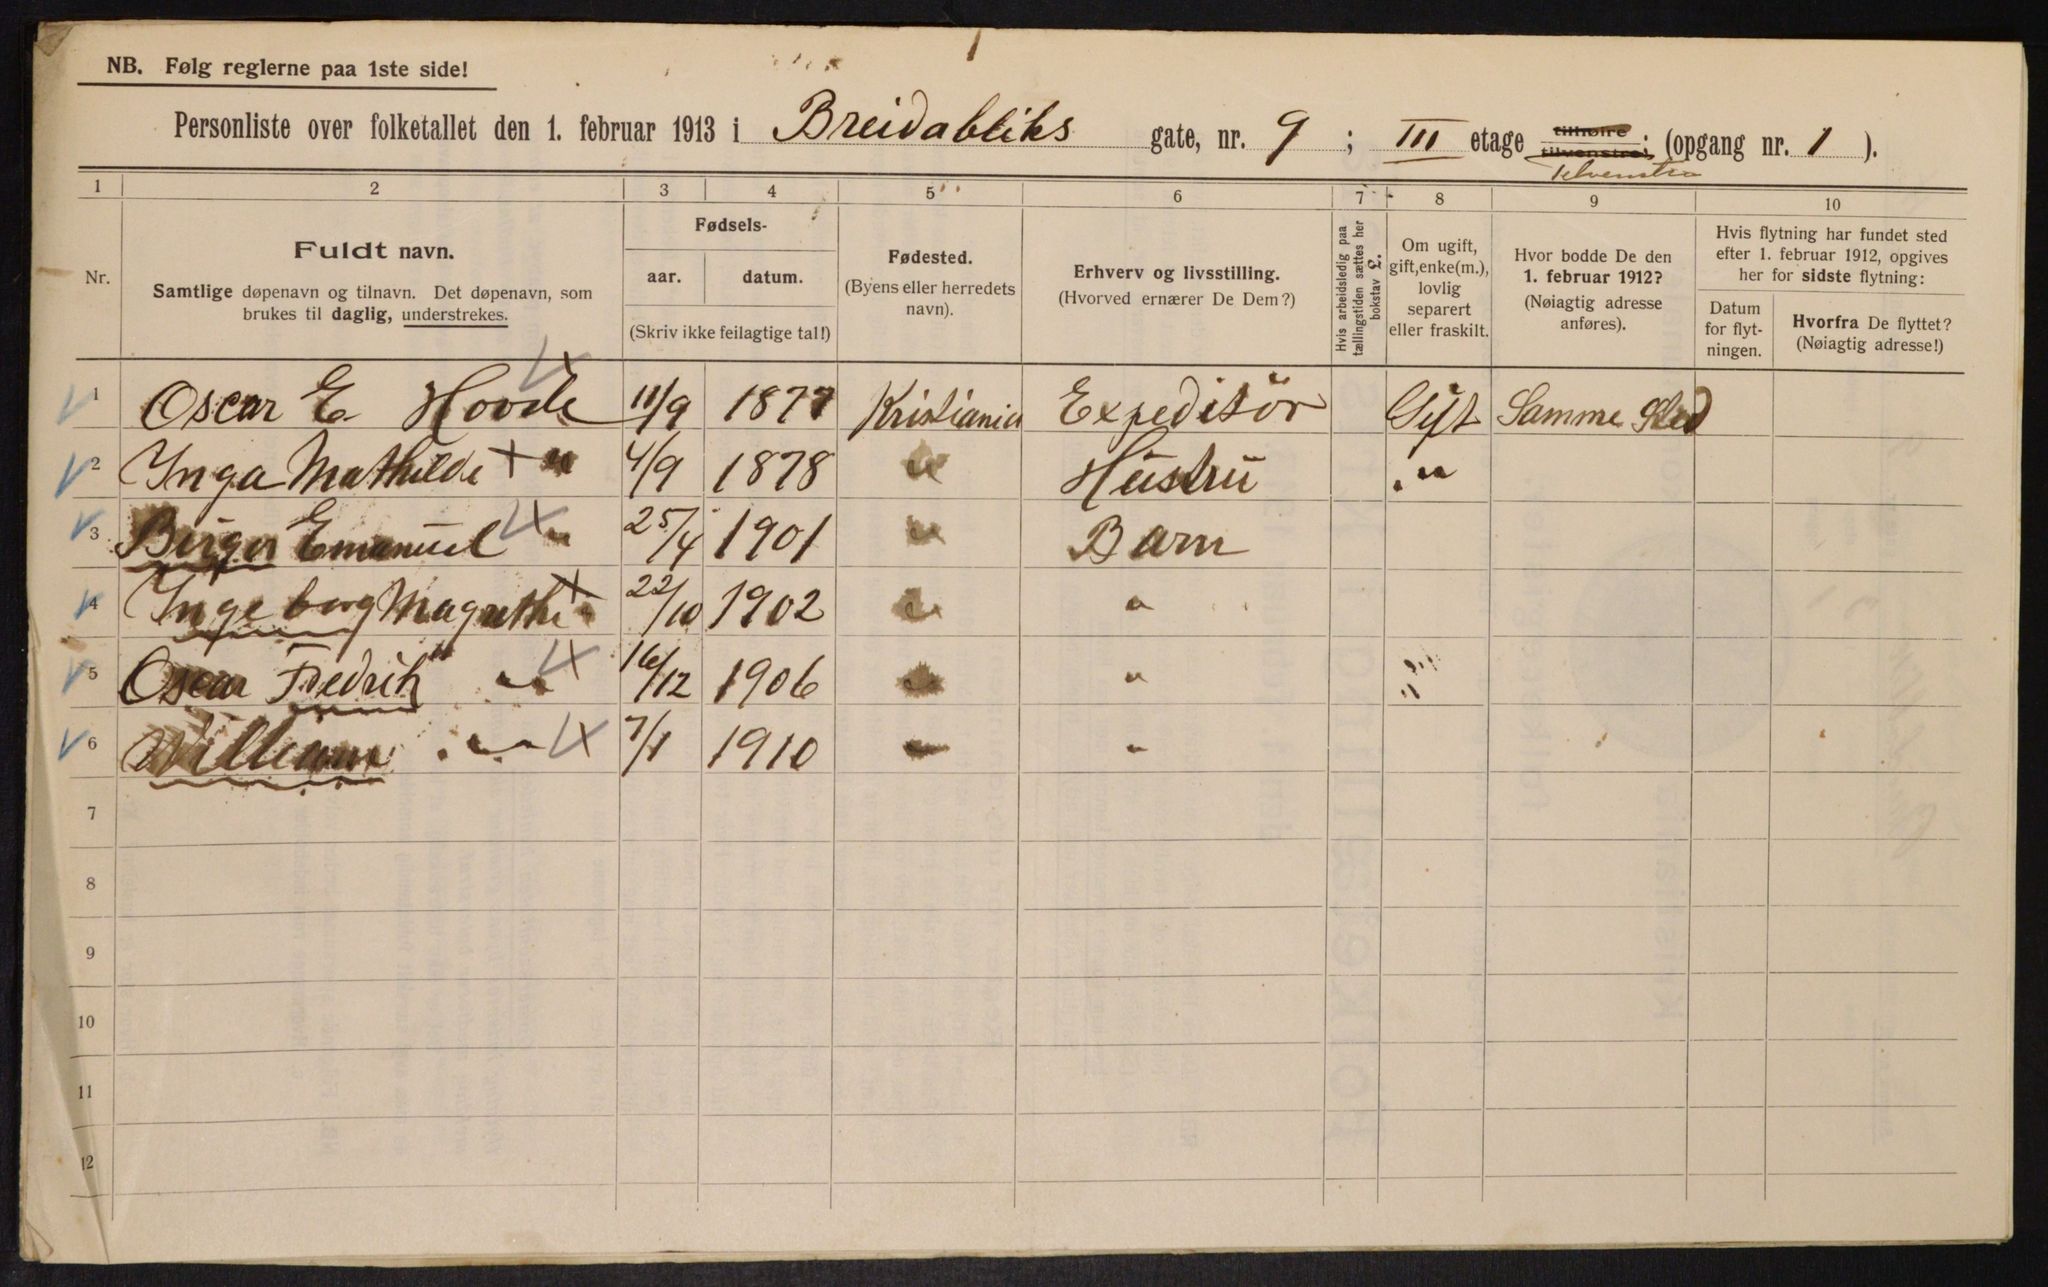 NB. Følg reglerne paa 1ste side!
Personliste over folketallet den 1. februar 1913 i Breidabliks gate, nr. 9 ; III etage tilhøire tilvenstre; (opgang nr. 1 ).
Tilvenstra
1 2 3 4 5 6 7 8 9 10
Nr.
Fuldt navn.
Samtlige døpenavn og tilnavn. Det døpenavn, som
brukes til daglig, understrekes.
Fødsels-
aar. datum.
(Skriv ikke feilagtige tal!)
Fødested.
(Byens eller herredets
navn).
Erhverv og livsstilling.
(Hvorved ernærer De Dem?)
Hvis arbeidsledig paa
tællingstiden sættes her
bokstav L.
Om ugift,
gift, enke(m.),
lovlig
separert
eller fraskilt.
Hvor bodde De den
1. februar 1912?
(Nøiagtig adresse
anføres).
Hvis flytning har fundet sted
efter 1. februar 1912, opgives
her for sidste flytning:
Datum
for flyt-
ningen.
Hvorfra De flyttet?
(Nøiagtig adresse!)
1 Oscar E Hovde 11/9 1877 Kristiania Expeditör Gift Samme Sted
2 Inga Mathilde " 4/9 1878 " Hustru "
3 Birger Emanuel " 25/4 1901 " Barn
4 Ingeborg Magrethe " 22/10 1902 " "
5 Oscar Fredrik " 16/12 1906 " "
6 William " 7/1 1910 " "
7
8
9
10
11
12